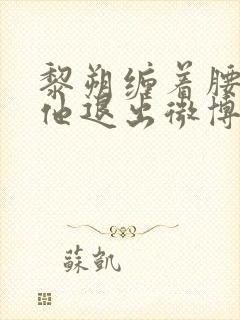 黎朔缠着腰
他退出微博
蘇凱